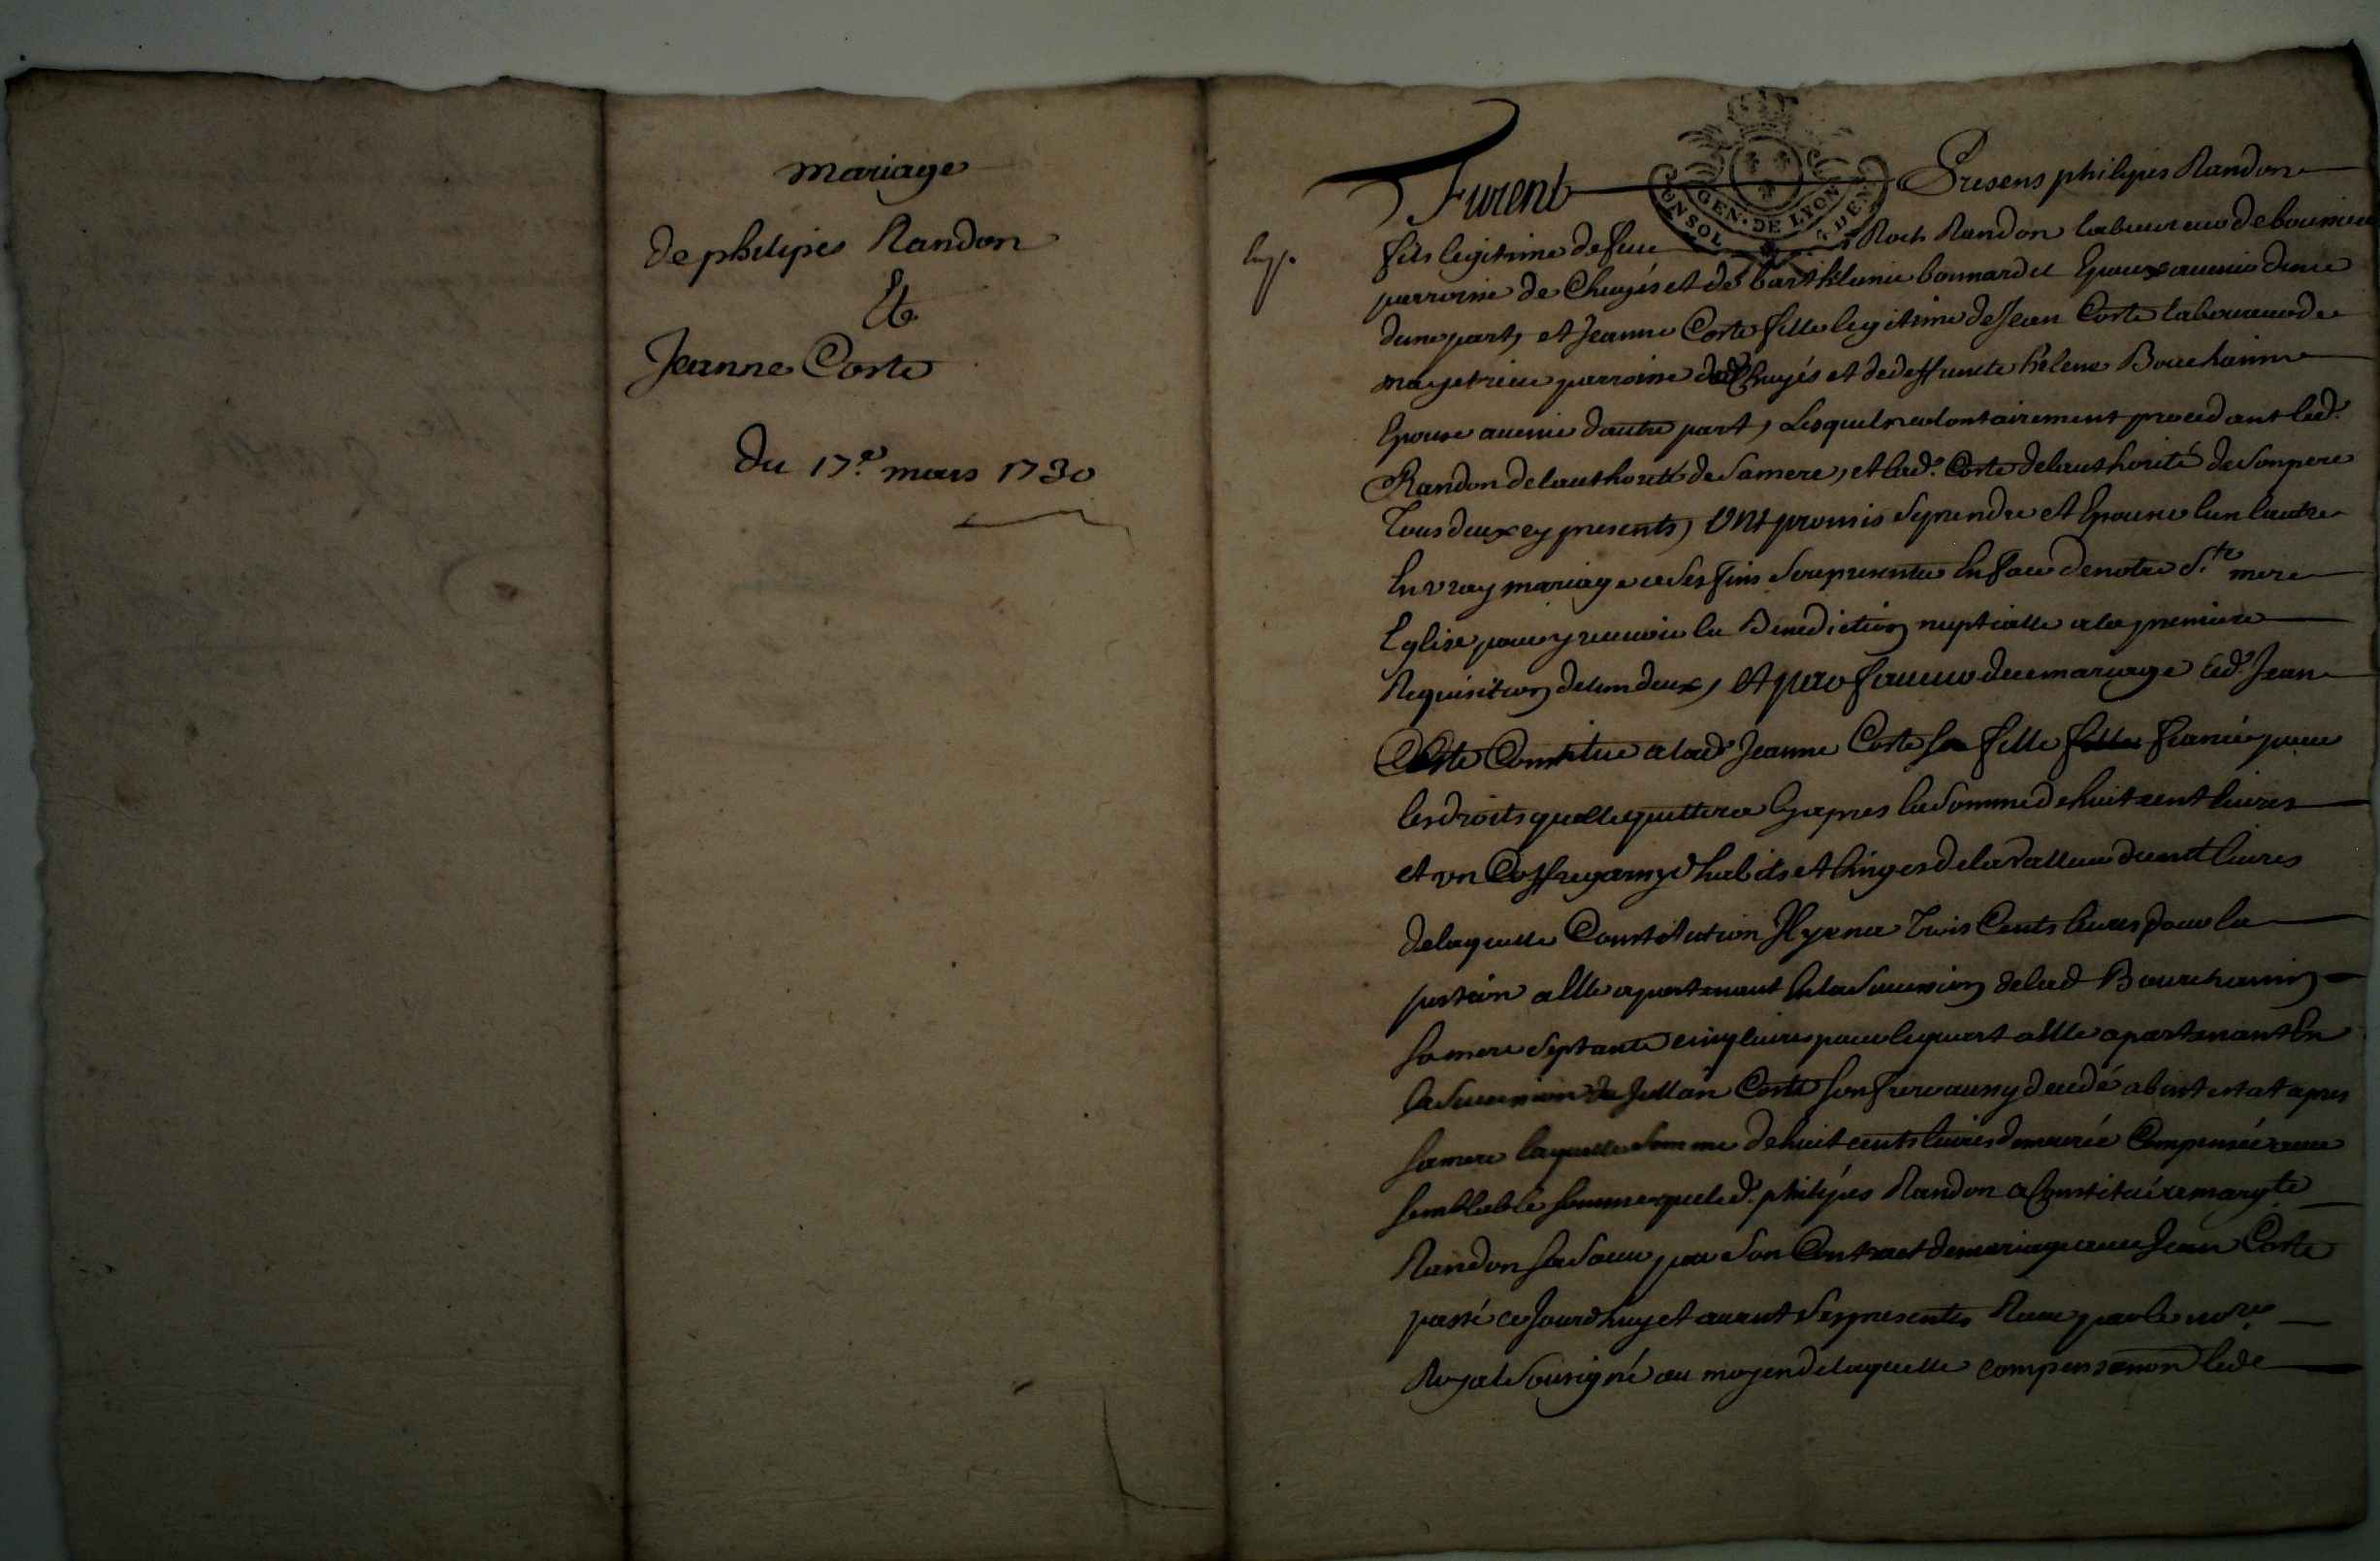 mariage
de philipes Randon
Et
Jeanne Coste
du 17.e mars 1730
GEN. DE LYON
CONSOL
2 DEN
Furent Presens philipes Randon
fils legitime de feu Roch Randon laboureur de
parroisse de Chuyés et de barthelemie bonnardel Epoux avenir dune
dune part, et Jeanne Coste fille legitime de Jean Coste laboureur de
parroisse de Chuyés et de deffuncte helene Bourchanin
Epouse avenir dautre part, Lesquels volontairement procedant led.
Randon de lauthorité de sa mere, et lad. Coste de lauthorité de son pere
Tous deux cy presents, Ont promis se prendre et Epouser lun lautre
En vray mariage a ses fins se representer En face de notre S.te mere
Eglise pour y recevoir la Benediction nuptialle a la premiere
Requisition de lun deux, Et pour faveur de ce mariage led. Jean
Coste Constitue a lad. Jeanne Coste sa fille fiancée pour
les droits quelle quittera Cy apres la somme de huit cent livres
et un Coffre garny dhabits et linges de la valleur de cent livres
de laquelle Constitution Il y en a Trois Cents livres pour la
portion a Elle apartenant En la succession de lad Bourchanin
sa mere septante cinq livres pour le quart a Elle apartenant En
la succession de Jullan Coste son frere aussy decedé abintestat apres
sa mere laquelle somme de huit cents livres demeure Compensée avec
semblable somme que led. philipes Randon a Constitué a marg.te
Randon sa soeur par son Contract de mariage avec Jean Coste
passé ce Jourdhuy et avant ses presentes Receu par le no.re
Royal sousigné au moyen de laquelle compensation led.